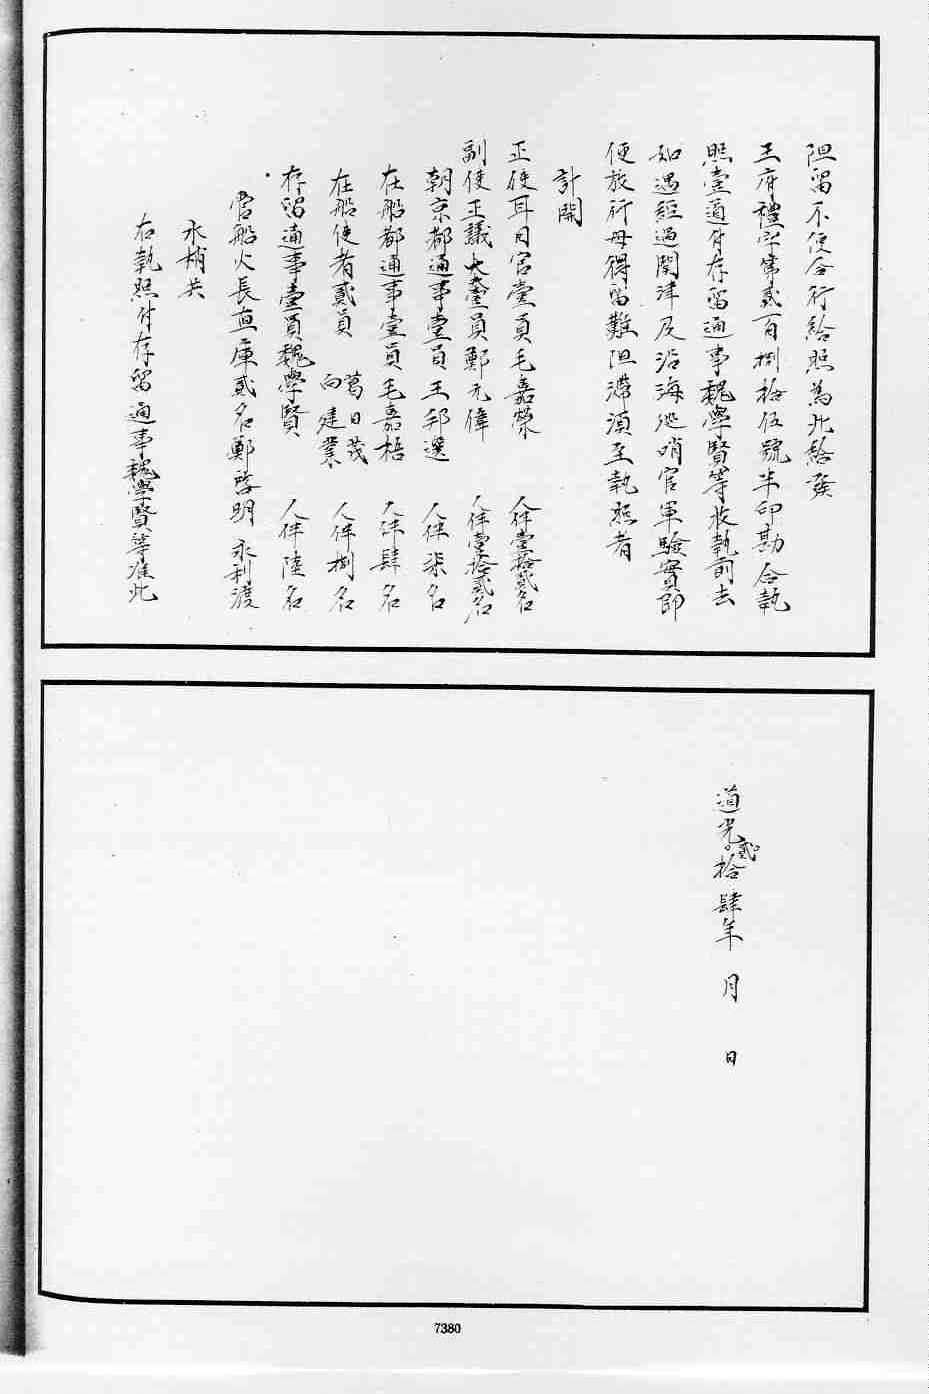 阻留不便合行給照為此給發
王府禮字第貳百捌拾伍號半印勘合執
照壹道付存留通事魏學賢等收執前去
如遇經過關津及沿海巡哨官軍驗實即
便放行毋得留難阻滯須至執照者
計開
正使耳目官壹員毛嘉榮 人伴壹拾貳名
副使正議大夫壹員鄭元偉 人伴壹拾貳名
朝京都通事壹員王邦選 人伴柒名
在船都通事壹員毛嘉梧 人伴肆名
在船使者貳員 葛日茂 向建業 人伴捌名
存留通事壹員魏學賢 人伴陸名
管船火長直庫貳名鄭啓明 永利渡
水梢共
右執照付存留通事魏學賢等准此
道光貳拾肆年 月 日
7380